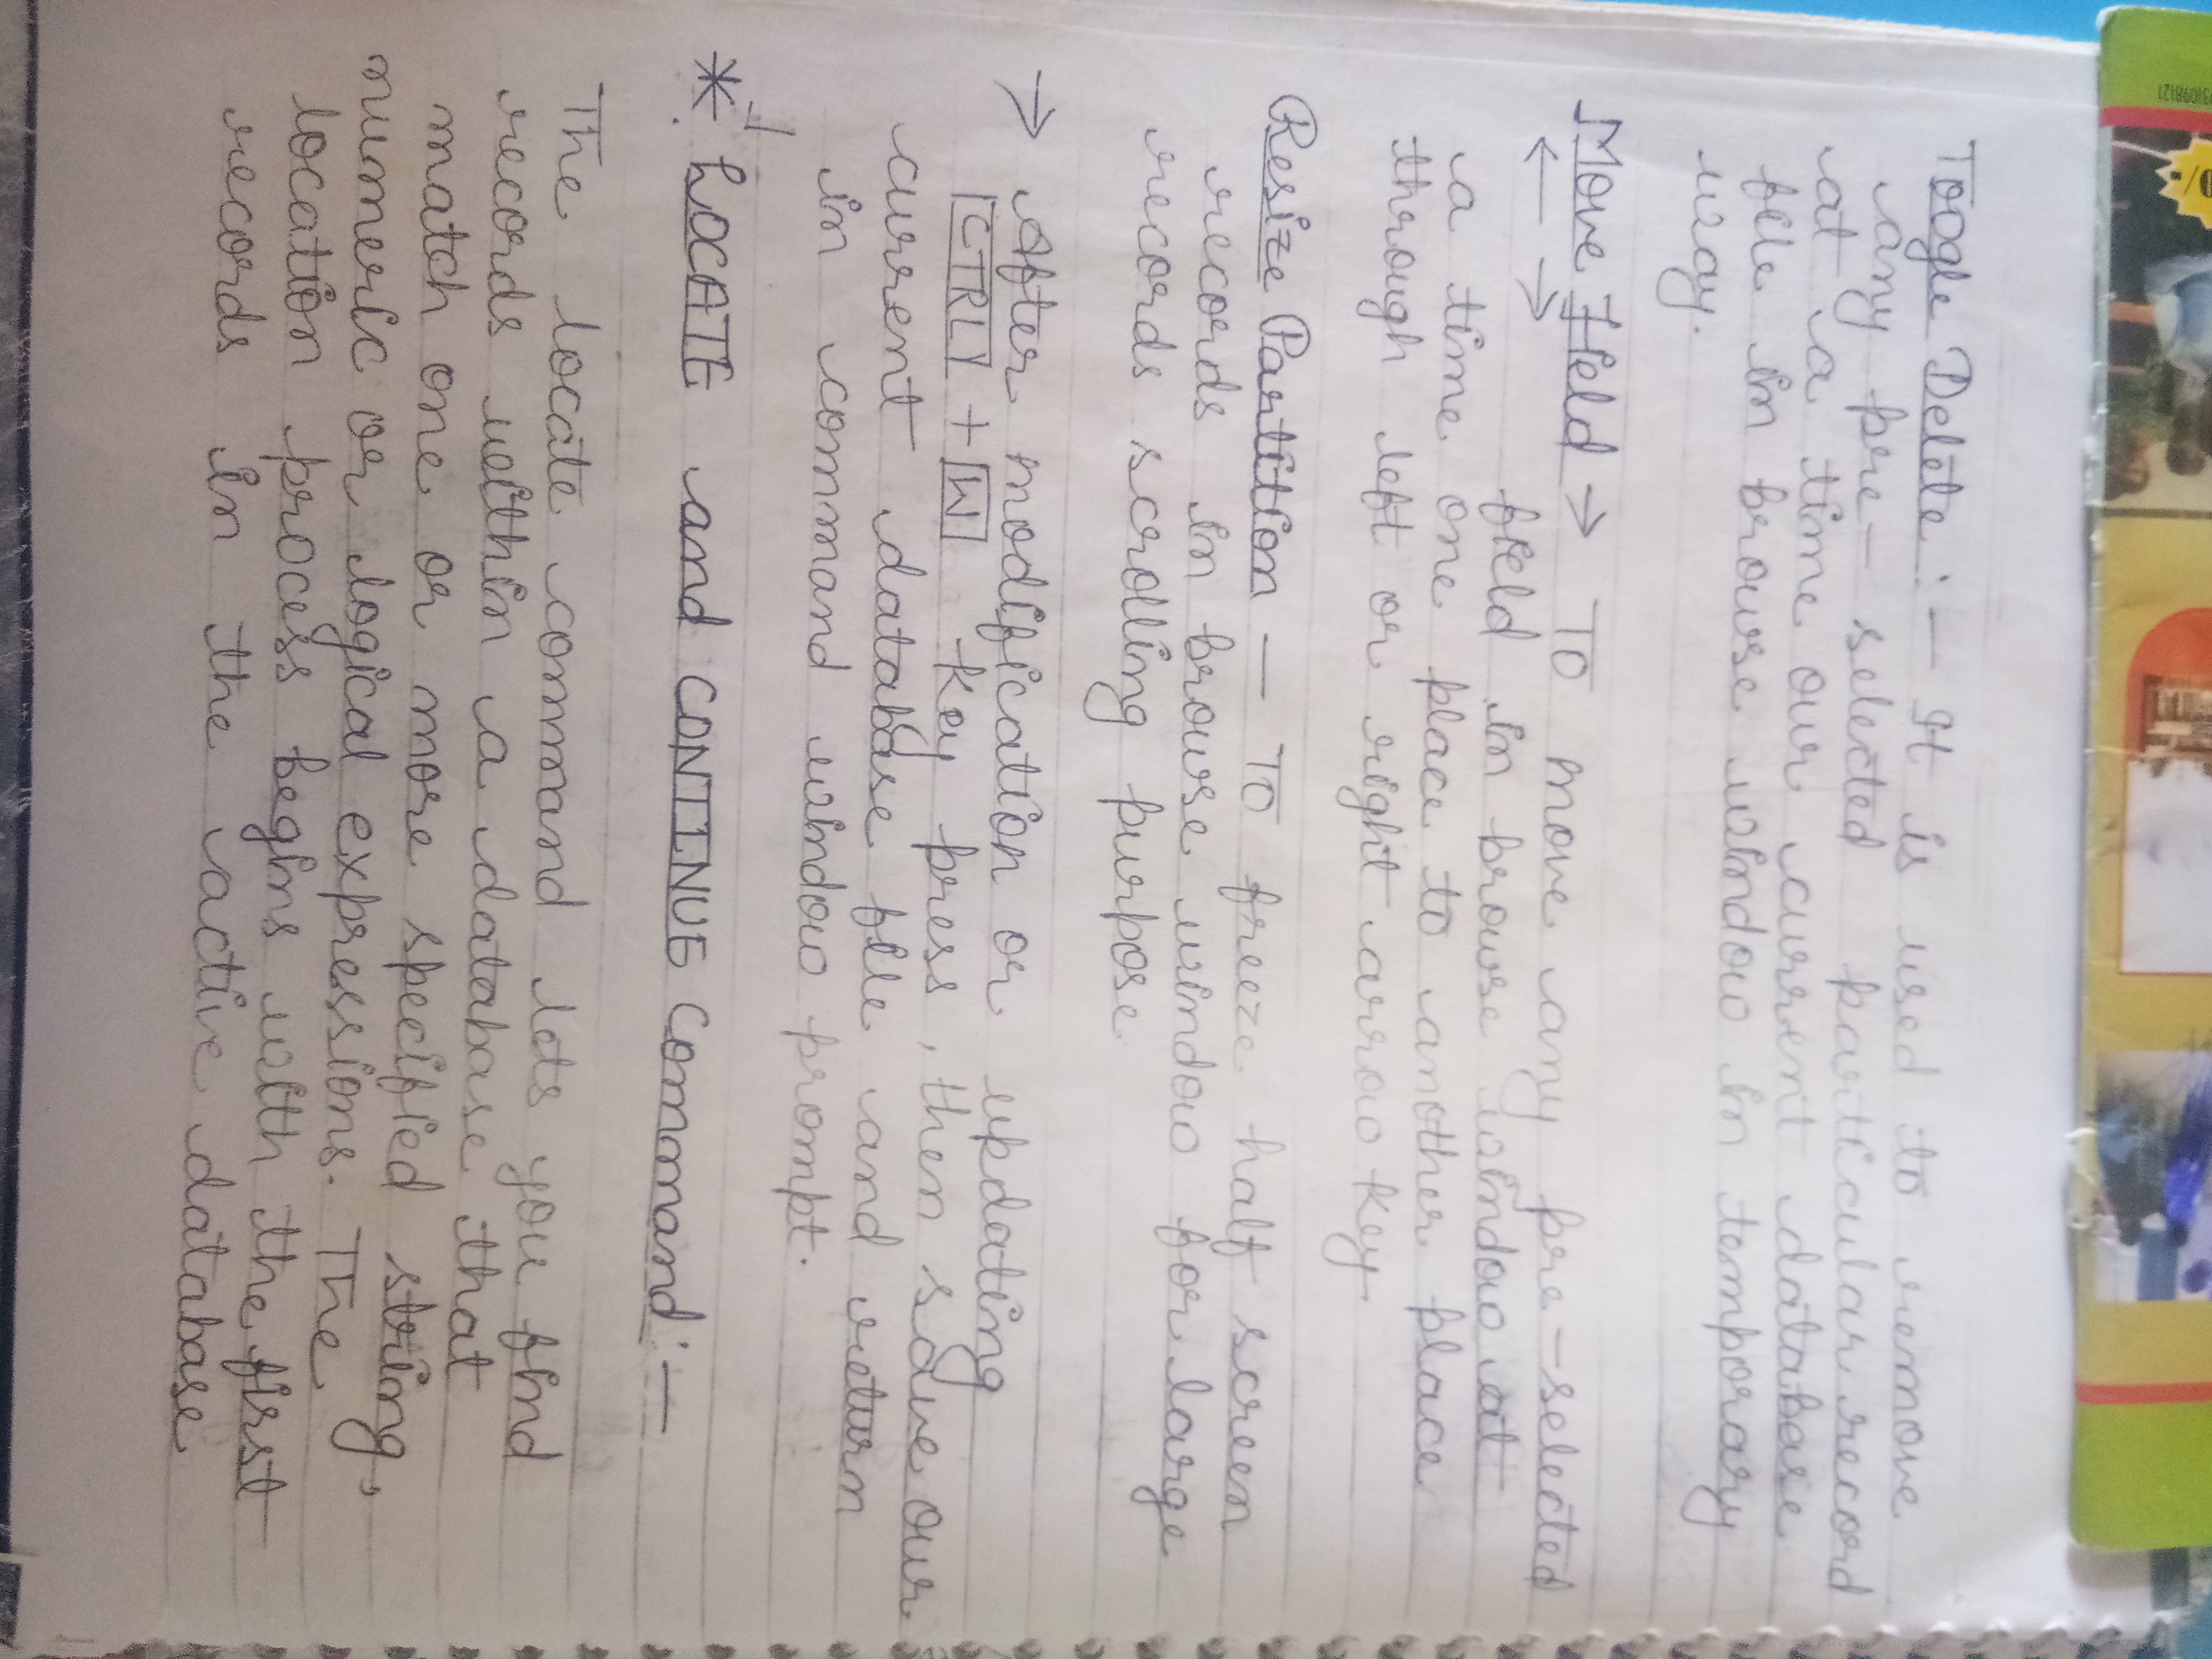 Toogle Delete :- It is used to remove
any pre-selected particular record
at a time our current database
file in browse window in temporary
way.
Move Field → To move any pre-selected
← → field in browse window at
a time one place to another place
through left or right arrow key.
Resize Partition — To freeze half screen
records in browse window for large
records scrolling purpose.
→ After modification or updating
CTRL + W key press, then save our
current database file and return
in command window prompt.
* LOCATE and CONTINUE Command :-
The locate command lets you find
records within a database that
match one or more specified string,
numeric or logical expressions. The
location process begins with the first
records in the active database